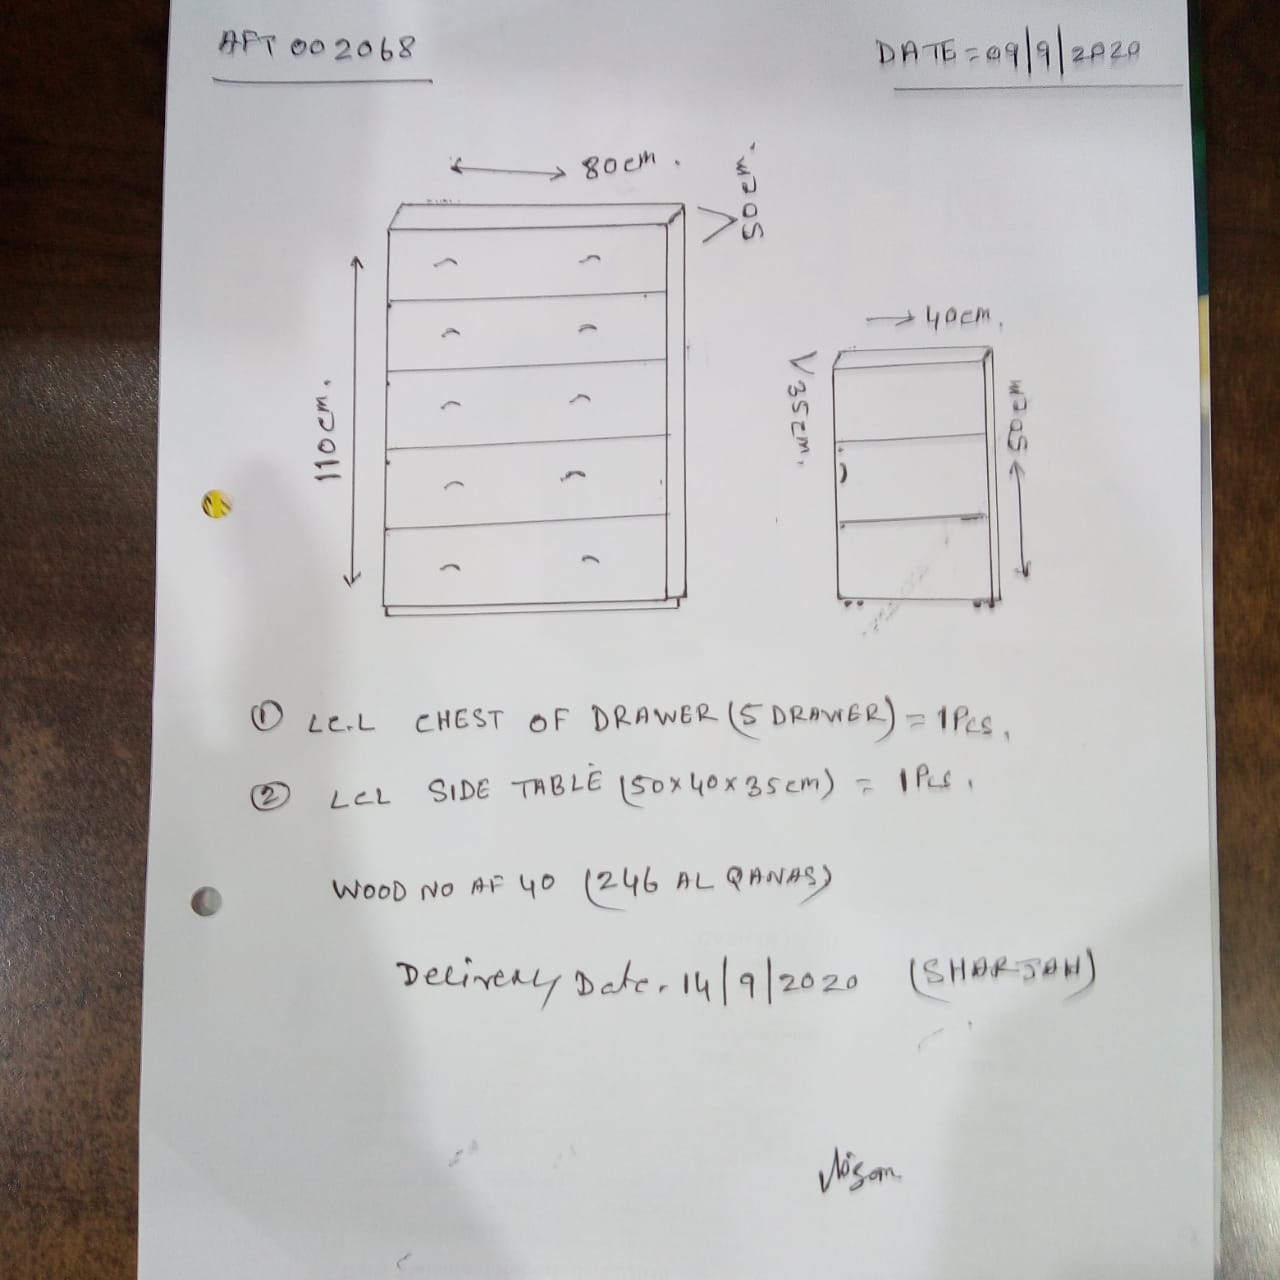 AFT 002068
DATE = 09/9/2020
80cm.
50cm.
110cm.
40cm.
35cm.
50cm
① LC.L CHEST OF DRAWER (5 DRAWER) = 1Pcs.
② LCL SIDE TABLE (50x40x35cm) = 1Pcs.
WOOD NO AF 40 (246 AL QANAS)
Delivery Date. 14/9/2020 (SHARJAH)